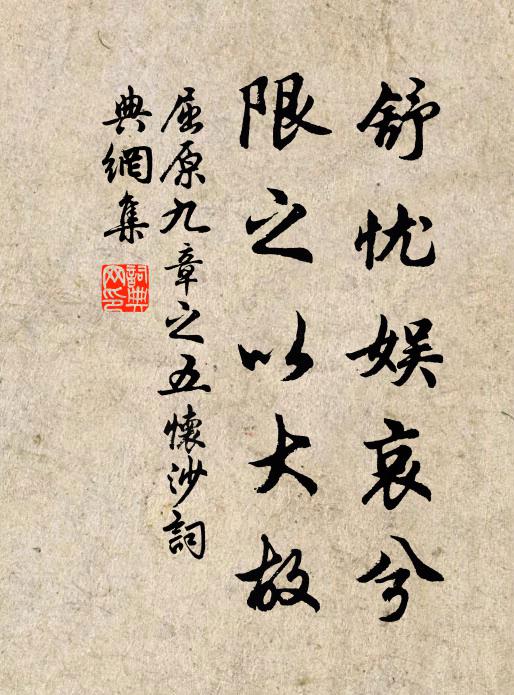 舒忧娱哀兮
限之以大故
屈原九章之五懷沙詞
典網集
詞典
网印